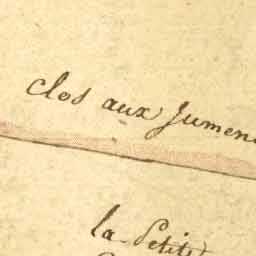 clos aux Jumen
la Petite